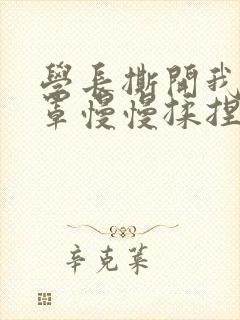 學長撕開我
罩慢慢揉捏
辛克萊